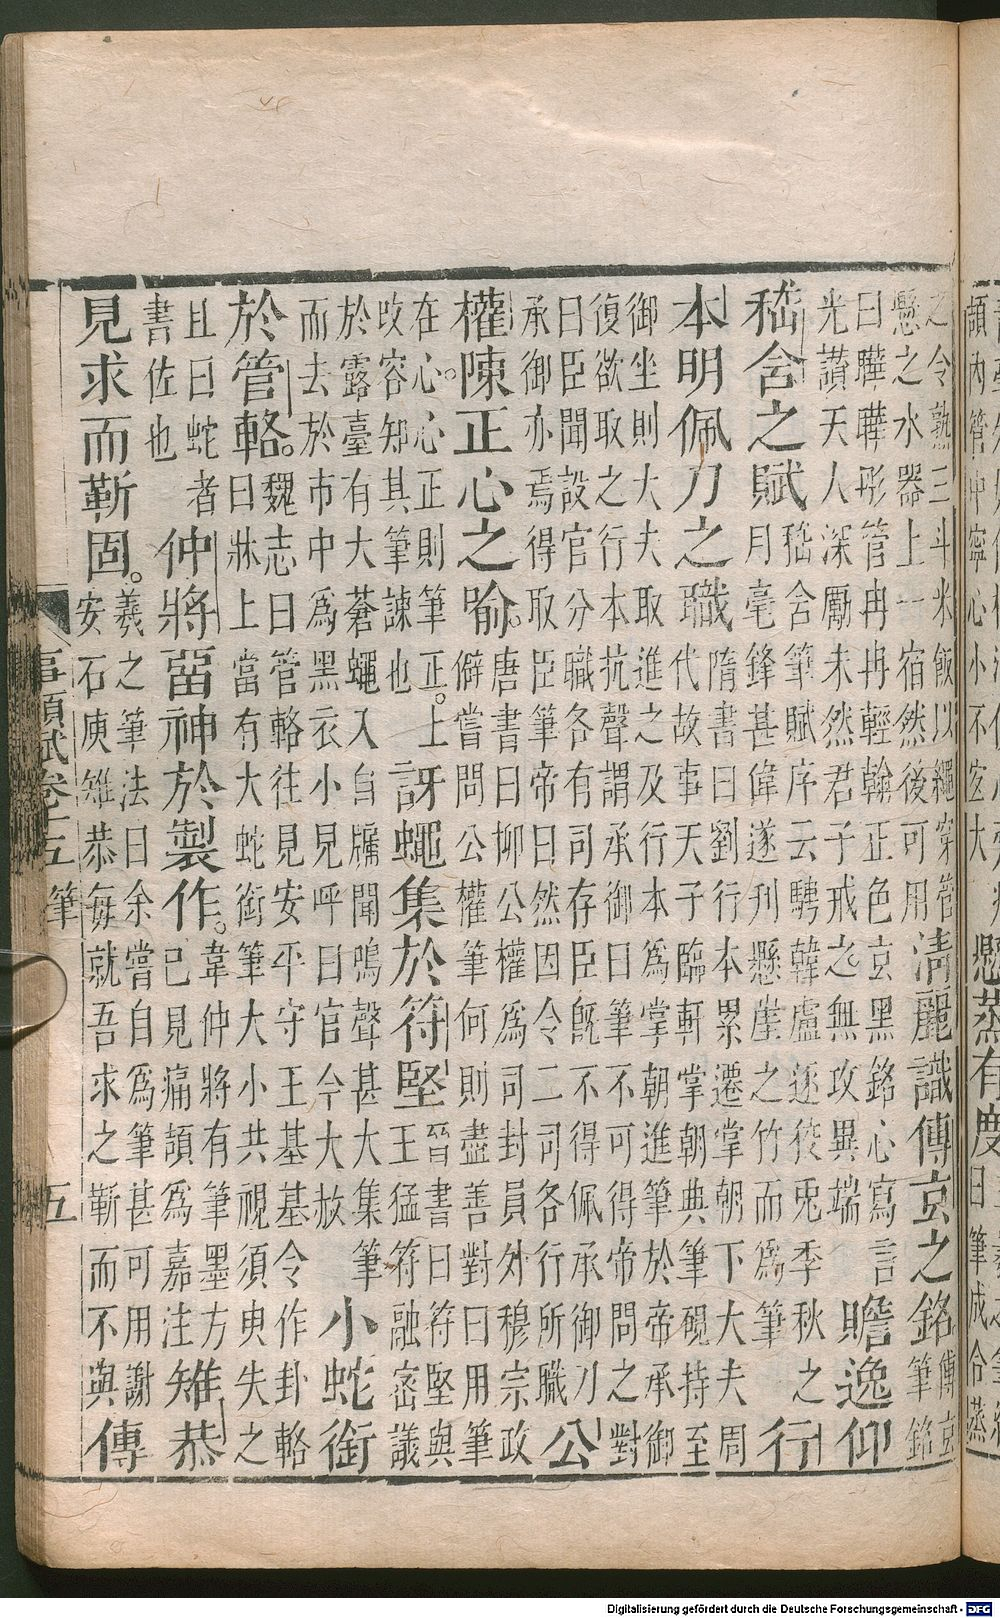 懸蒸有度
曰筆成令蒸
之令熟三斗米飯以繩穿管
懸之水器上一宿然後可用
淸麗識傅玄之銘
傅玄
筆銘
曰韡韡彤管冉冉輕翰正色玄黑銘心寫言
光讃天人深厲未然君子戒之無攻異端
贍逸仰
嵇含之賦
嵇含筆賦序云騁韓盧逐狡兎季秋之
月毫鋒甚偉遂刋懸崖之竹而為筆
行
本明佩刀之職
隋書曰劉行本累遷掌朝下大夫周
代故事天子臨軒掌朝典筆硯持至
御坐則大夫取進之及行本為掌朝進筆於帝承御
復欲取之行本抗聲謂承御曰筆不可得帝問之對
曰臣聞設官分職各有司存臣旣不得佩承御刀
承御亦焉得取臣筆帝曰然因令二司各行所職
公
權陳正心之喻。
唐書曰柳公權為司封員外穆宗政
僻嘗問公權筆何則盡善對曰用筆
在心。心正則筆正。上
攺容知其筆諫也
訝蠅集於符堅
晉書曰符堅與
王猛符融宻議
於露臺有大蒼蠅入自牖聞鳴聲甚大集筆
而去於市中為黑衣小見呼曰官今大赦
小蛇銜
於管輅。
魏志曰管輅往見安平守王基基令作卦輅
曰牀上當有大蛇銜筆大小共視須臾失之
且曰蛇者
書佐也
仲將畱神於製作。
韋仲將有筆墨方
已見痛頡為嘉注
雉恭
見求而靳固。
羲之筆法曰余嘗自為筆甚可用謝
安石庾雉恭每就吾求之靳而不與
傳
事類賦卷十五 筆 五
Digitalisierung gefördert durch die Deutsche Forschungsgemeinschaft - DFG